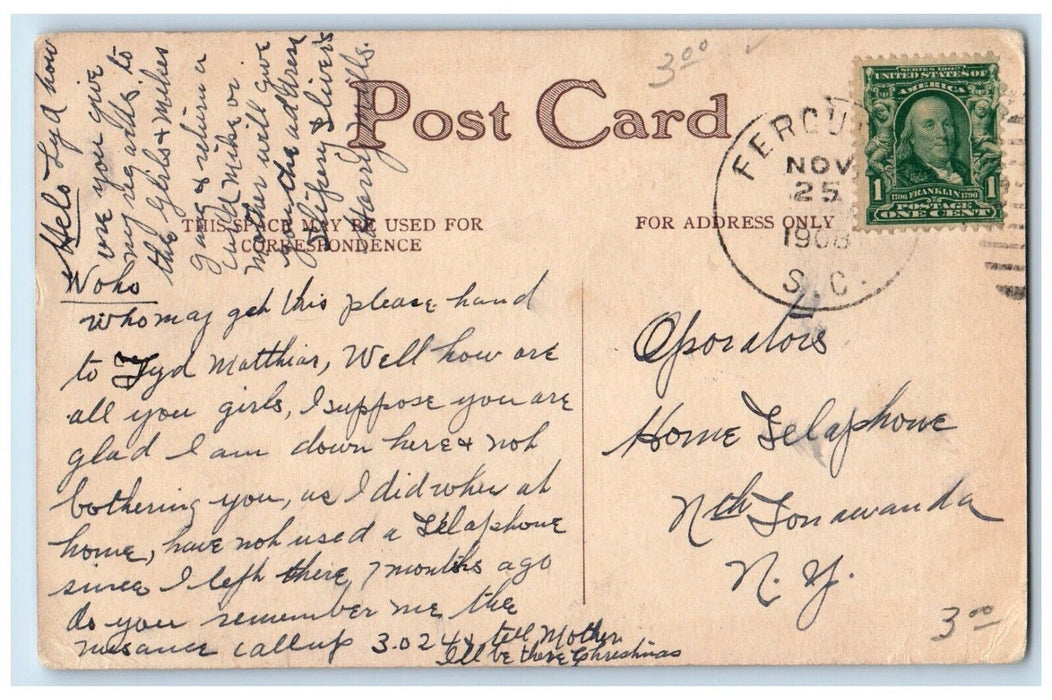 Post Card
THIS SPACE MAY BE USED FOR
CORRESPONDENCE
FOR ADDRESS ONLY
3.00
FERGU
NOV
25
1908
S.C.
SERIES 1902
UNITED STATES OF
AMERICA
1 1
1706 FRANKLIN 1790
POSTAGE
ONE CENT
Helo Lyd how
are you give
my regards to
the Girls & Mikes
Gang & return a
Card Mike or
Mother will give
you the address
Slippery Slivers
Harry
who may get this please hand
to Lyd Matthias, Well how are
all you girls, I suppose you are
glad I am down here & not
bothering you, as I did when at
home, have not used a Telaphone
since I left there, 7 months ago
do you remember me the
nusance call up 3.024 & tell Mother
I'll be there Chrestmas
Oporators
Home Telaphone
Nth Tonawanda
N.Y.
3.00